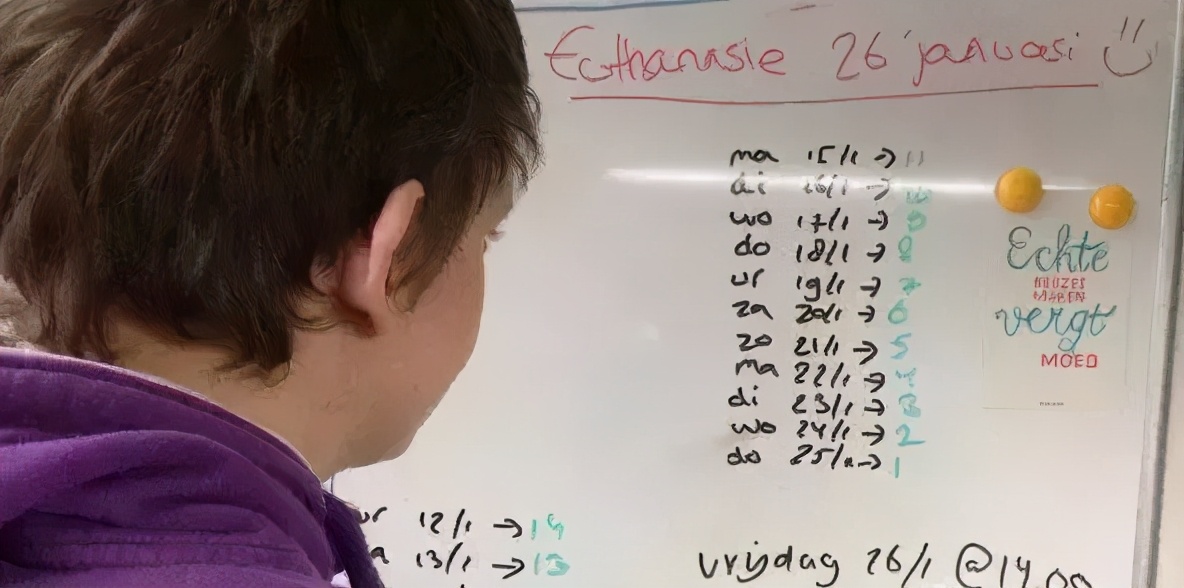 Euthanasie 26 januari
ma 15/1 → 11
di 16/1 → 10
wo 17/1 → 9
do 18/1 → 8
vr 19/1 → 7
za 20/1 → 6
zo 21/1 → 5
ma 22/1 → 4
di 23/1 → 3
wo 24/1 → 2
do 25/1 → 1
Echte
KEUZES
MAKEN
vergt
MOED
vr 12/1 → 14
13/1 → 13
vrijdag 26/1 @14.00